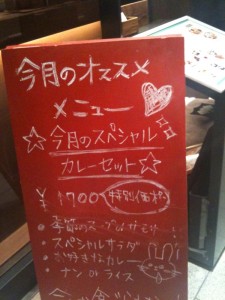 今月のオススメ
メニュー
☆今月のスペシャル
カレーセット☆
¥700
・季節のスープorサモサ
・スペシャルサラダ
・お好きなカレー
・ナンorライス